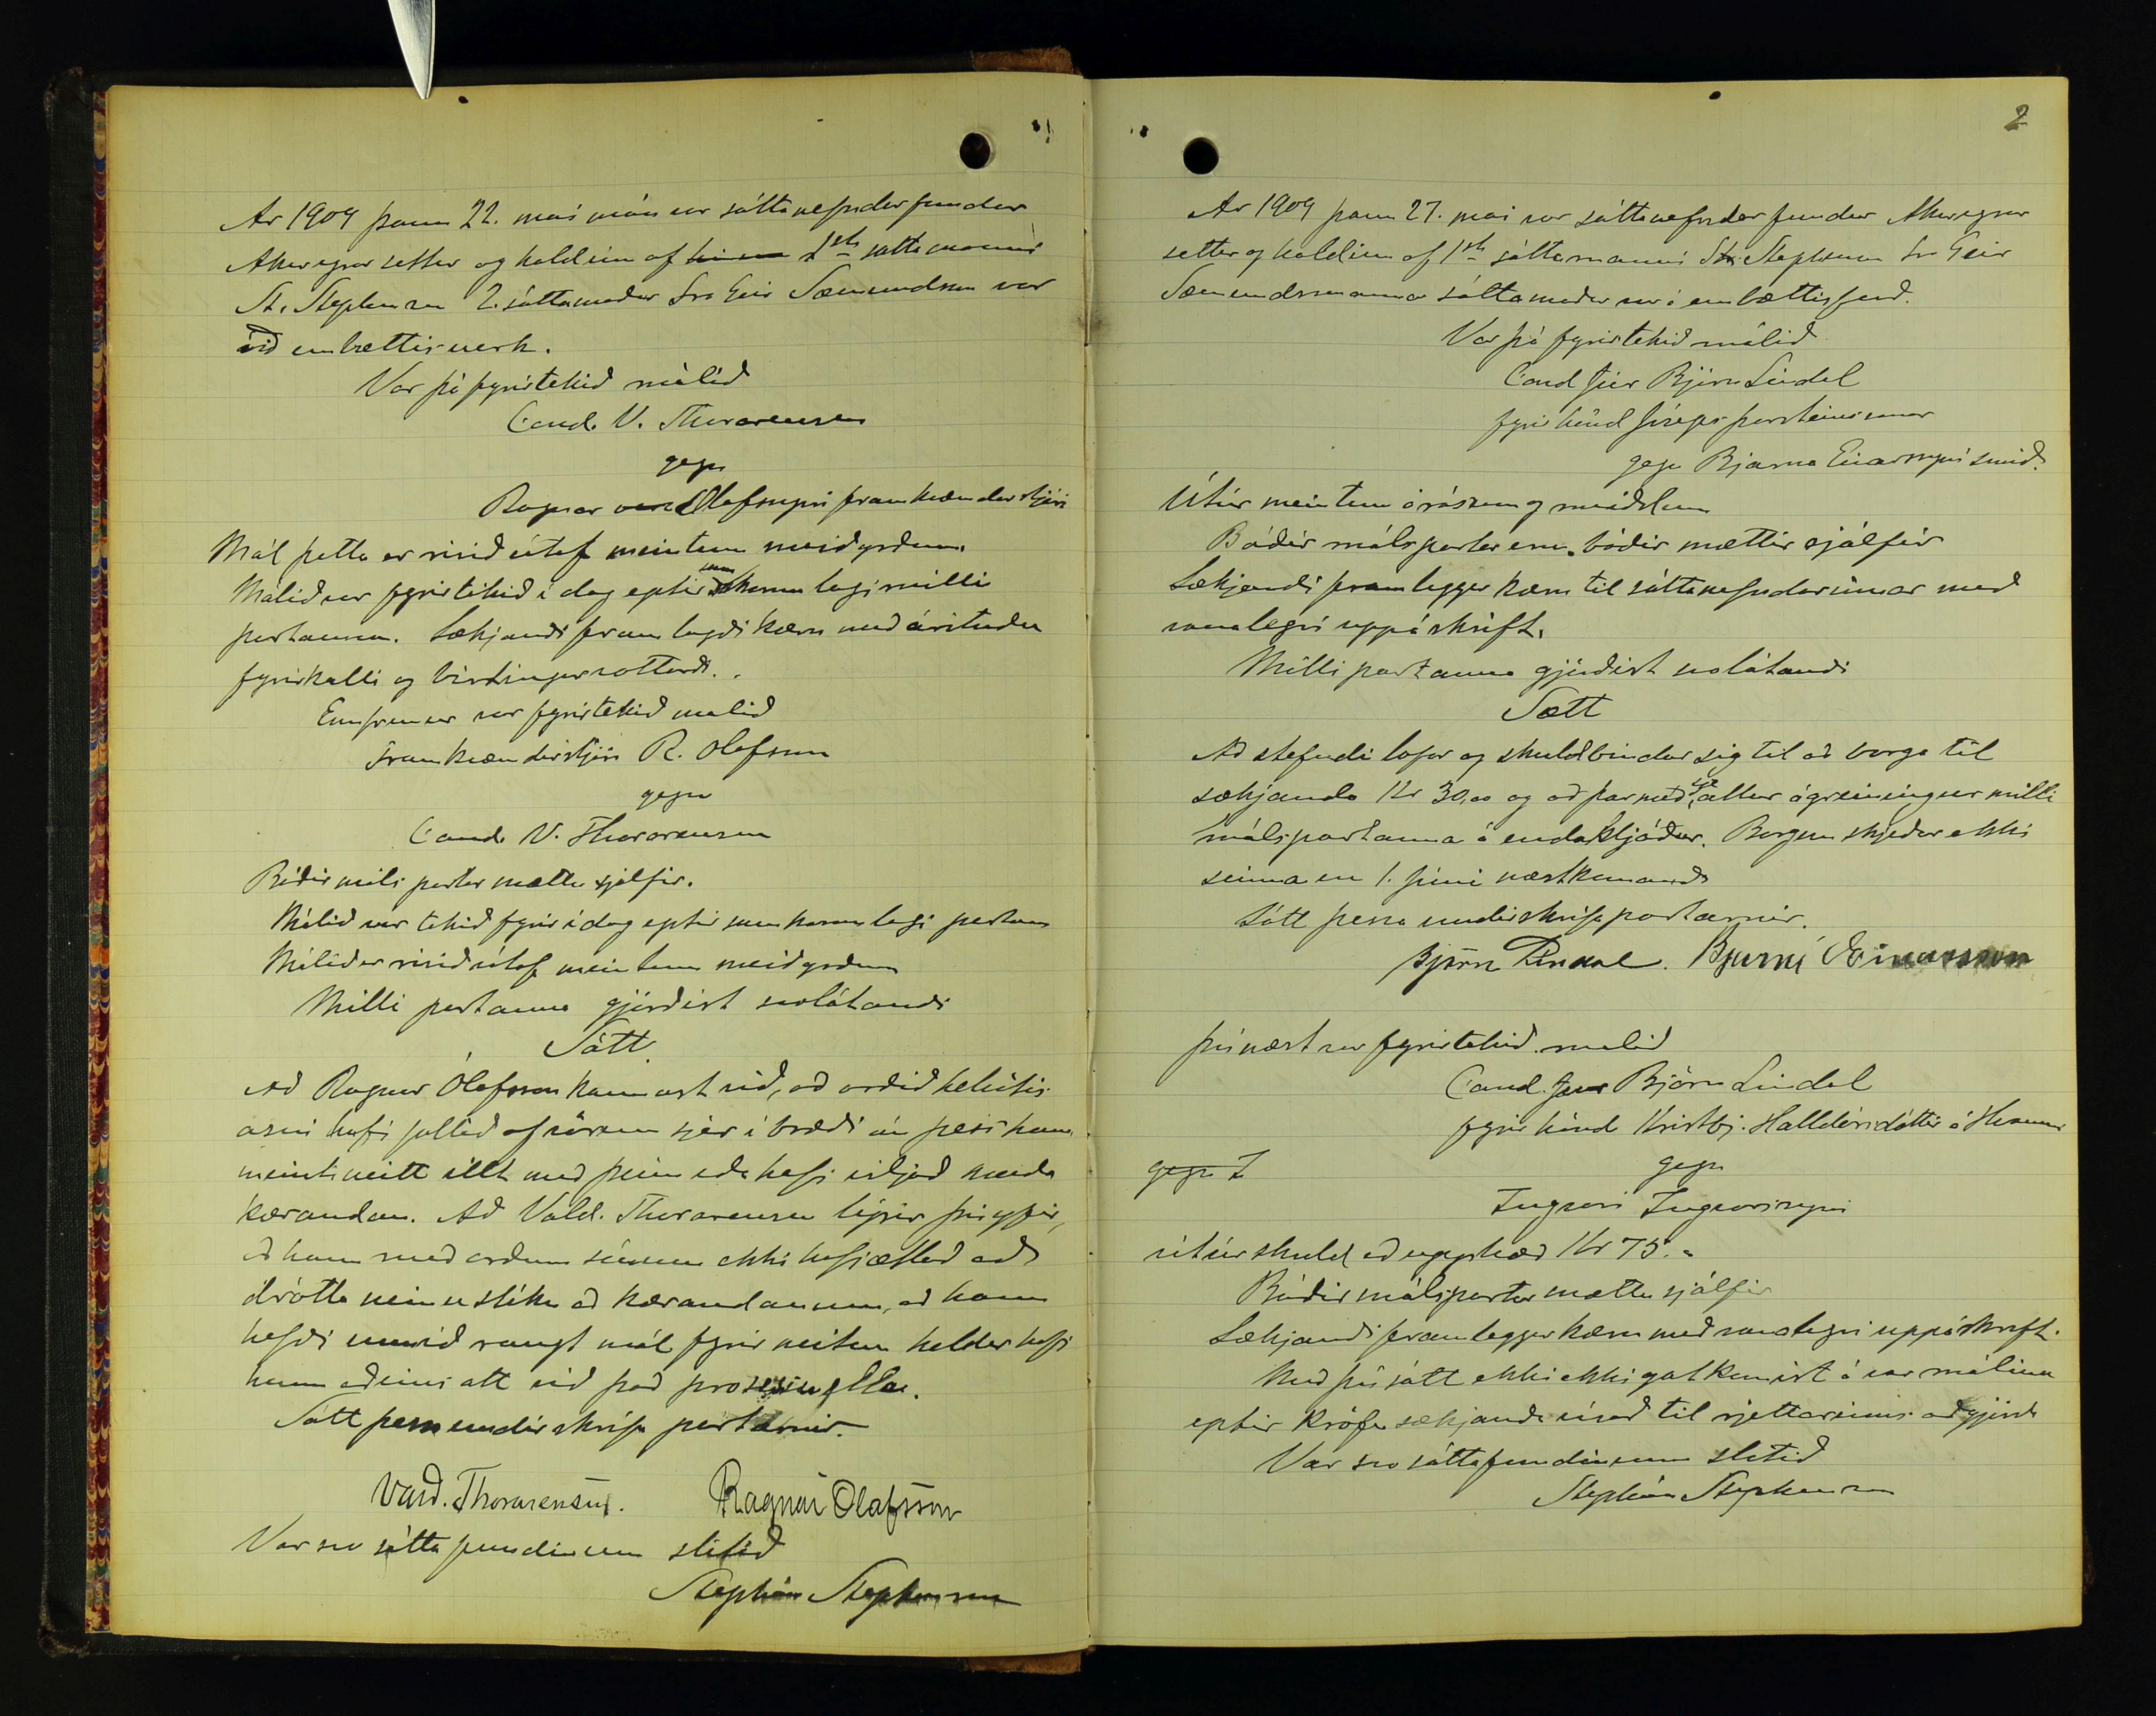 Ár 1909 þann 22. maí mán var sáttanefndarfundur
Akureyrar settur og haldinn af hinum 1sta sáttamanni
St. Stephensen 2. sáttamaður Sra Geir Sæmundsson var
við embættisverk.
Var þá fyrirtekið málið
Cand. V. Thorarensen
gegn
Ragnar Ólafssyni framkvæmdarstjóra
Mál þetta er risið útaf meintum meiðyrðum.
Málið var fyrirtekið í dag eptir samkomulagi milli
partanna. Sækjandi framlagði kæru með árituðu
fyrirkalli og birtingarvottorði.
Ennfremur var fyrirtekið malið
Framkvæmdarstjóri R. Olafsson
gegn
Cand. V. Thorarensen
Báðir máls partar mættu sjálfir.
Málið var tekið fyrir í dag eptir samkomulagi partana
Málið er risið útaf meintum meiðyrðum
Milli partanna gjörðist svolátandi
Sátt
Að Ragnar Ólafsson kannast við, að orðið helvítis
asni hafi fallið af vörum sjer í bræði án þess hann
meinti neitt illt með þeim eða hafi viljað meiða
kærandan. Að Vald. Thorarensen lýsir því yfir,
að hann með orðum sínum ekki hafi ætlað að
drótta neinu slíku að kærandanum, að hann
hefði unnið rangt mál fyrir neitun heldur hafi
hann aðeins átt við það
Sátt þessa undirskrifa partarnir.
Vald. Thorarensen. Ragnar Olafsson
Var svo sátta fundinum slitið
Stephán Stephensen
2
Ár 1909 þann 27. mai var sáttanefndar fundur Akureyrar
settur og haldinn af 1sta sáttamanni St. Stephensen Sr. Geir
Sæmundsson annar sáttamaður var í embættisferð.
Var þá fyrirtekið málið
Cand jur Björn Líndal
fyrir hönd Jóseps Þorsteinssonar
gegn Bjarna Einarssyni smið.
Útúr meintum árásum og meiðslum
Báðir málspartar eru báðir mættir sjálfir
Sækjandi framleggur kæru til sáttanefndarinnar með
vanalegri uppáskrift.
Milli partanna gjörðist svolátandi
Sætt
Að stefndi lofar og skuldbindur sig til að borga til
sækjanda Kr 30,00 og að þar með sje allur ágreiningur milli
málspartanna á enda kljáður. Borgun skjeður ekki
seinna en 1. júní næstkomandi
Sátt þessa undirskrifa partarnir.
Björn Líndal. Bjarni Einarsson
Þvínæst var fyrirtekið malið
Cand. jur Björn Lindal
fyrir hönd Kristbj. Halldórsdóttir á Hvammi
gegn I
gegn
Ingvari Ingvarssyni
útúr skuld að upphæð Kr 75. "
Báðir málspartar mættu sjálfir
Sækjandi framleggur kæru með vanalegri uppáskrift.
Með því sátt ekki ekki gat komist á var málinu
eptir kröfu sækjanda vísað til rjettarins aðgjörða
Var svo sáttafundinum slitið
Stephán Stephensen